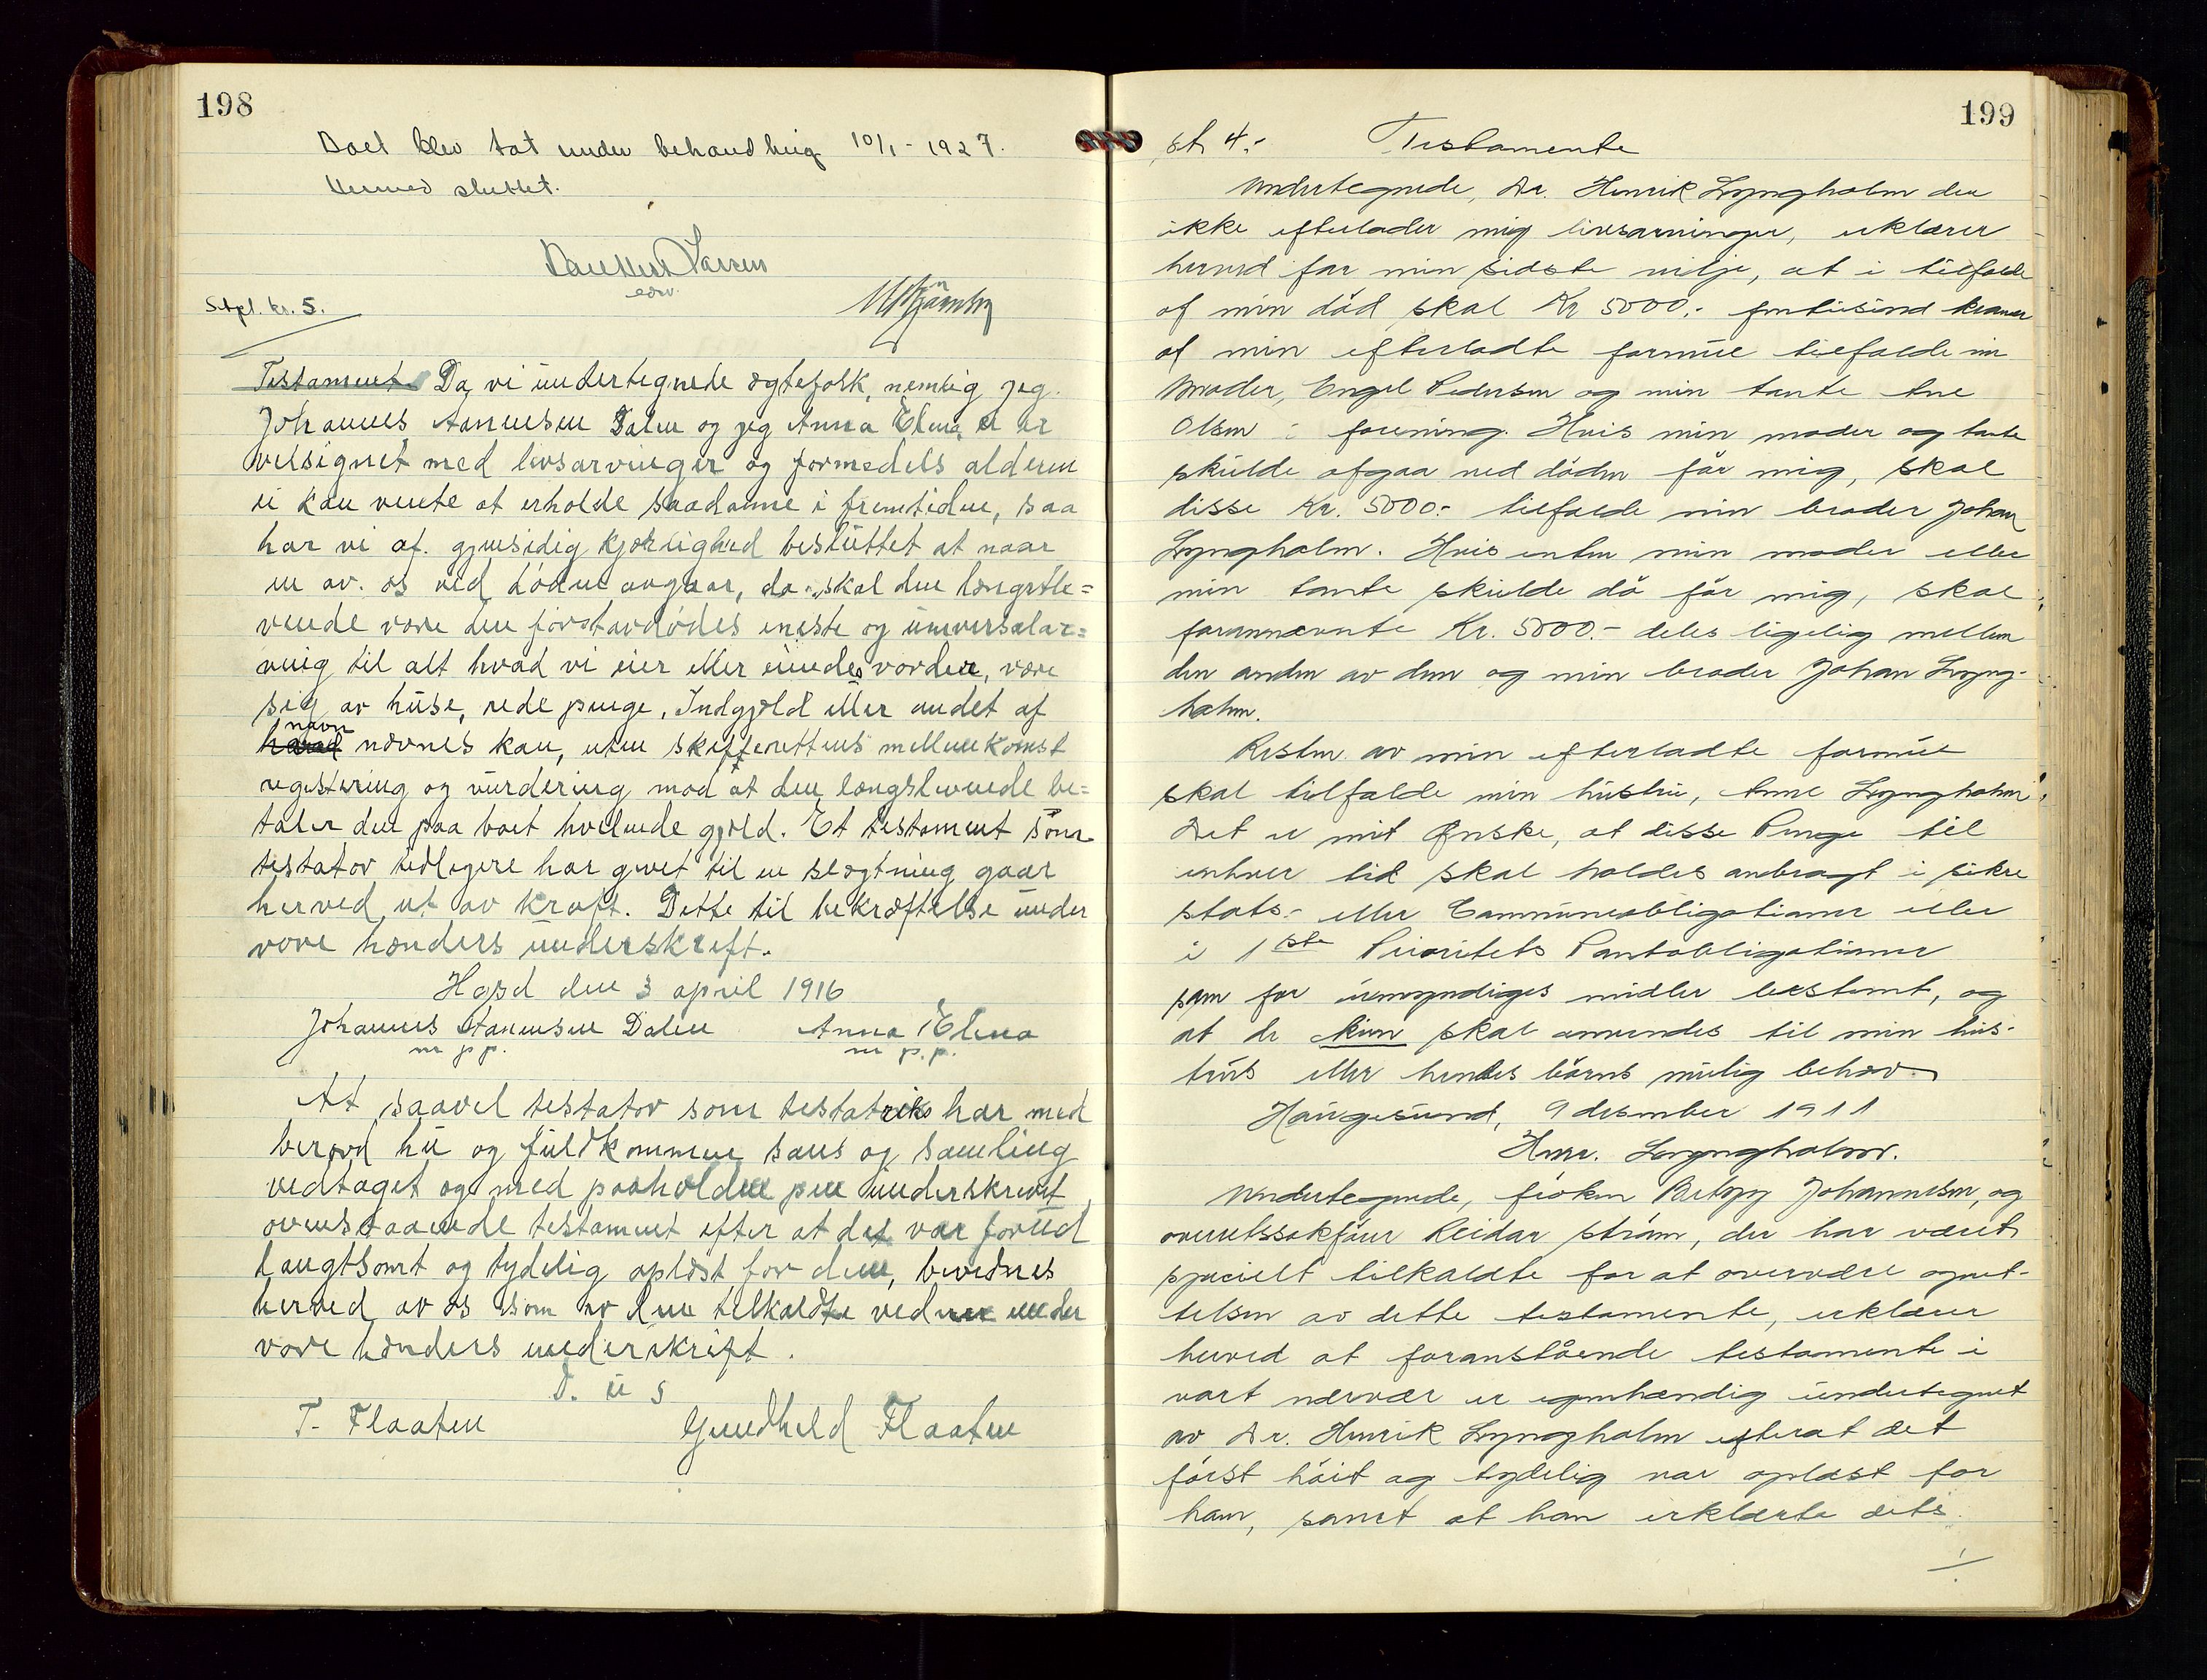 198
Boet blev tat under behandling 10/1 - 1927.
Hermed sluttet.
edv.
Stpl. kr. 5.
Testament. Da vi undertegnede ægtefolk, nemlig jeg
Johannes Aanensen Dalen og jeg Anna Elena ei er
velsignet med livsarvinger og formedels alderen
ei kan vente at erholde saadanne i fremtiden, saa
har vi af. gjensidig kjærlighed besluttet at naar
en av. os ved døden avgaar, da skal den længstle=
vende være den førstavdødes eneste og universalar=
ving til alt hvad vi eier eller eiendes vorder, være
sig av huse, rede penge, Indgjæld eller andet af
navn
hvad nævnes kan, uten skifterettens mellemkomst
registering og vurdering mod at den længstlevende be=
taler den paa boet hvilende gjæld. Et testament som
testator tidligere har givet til en slægtning gaar
herved ut av kraft. Dette til bekræftelse under
vore hænders underskrift.
Højsd den 3 april 1916
Johannes Aanensen Dalen Anna Elena
m p p. m p. p.
At saavel testator som testatriks har med
beraad hu og fuldkommen sans og samling
vedtaget og med paaholden pen underskrevet
ovenstaaende testament efter at det var forud
langtsomt og tydelig oplæst for dem, bevidnes
herved av os som av dem tilkaldte vidner under
vore hænders underskrift.
D. u s
T. Flaaten Gundhild Flaaten
199
st 4.- Testamente
Undertegnede, Dr. Henrik Lyngholm der
ikke efterlader mig livsarvinger, erklærer
herved for min sidste vilje, at i tilfælde
af min död skal Kr 5000.- femtusind kroner
af min efterladte formue tilfalde min
Moder, Engel Pedersen og min tante Ane
Olsen i forening. Hvis min moder og tante
skulde afgaa ved döden för mig, skal
disse Kr. 5000.- tilfalde min broder Johan
Lyngholm. Hvis enten min moder eller
min tante skulde dö för mig, skal
forannævnte Kr. 5000.- deles ligelig mellem
den anden av dem og min broder Johan Lyng-
holm.
Resten av min efterladte formue
skal tilfalde min hustru, Anne Lyngholm.
Det er mit Ønske, at disse Penge til
enhver tid skal holdes anbragt i sikre
stats- eller Communeobligationer eller
i 1ste Prioritets Pantobligationer
som for umyndiges midler bestemt, og
at de kun skal anvendes til min hus-
trus eller hendes börns mulig behov.
Haugesund, 9 desember 1911
Henr. Lyngholm.
Undertegnede, fröken Betzy Johannesen, og
overretssakförer Reidar ström, der har været
specielt tilkaldte for at overvære opret-
telsen av dette testamente, erklærer
herved at foranstående testamente i
vort nærvær er egenhændig undertegnet
av Dr. Henrik Lyngholm efterat det
först höit og tydelig var oplæst for
ham, samt at han erklærte dets